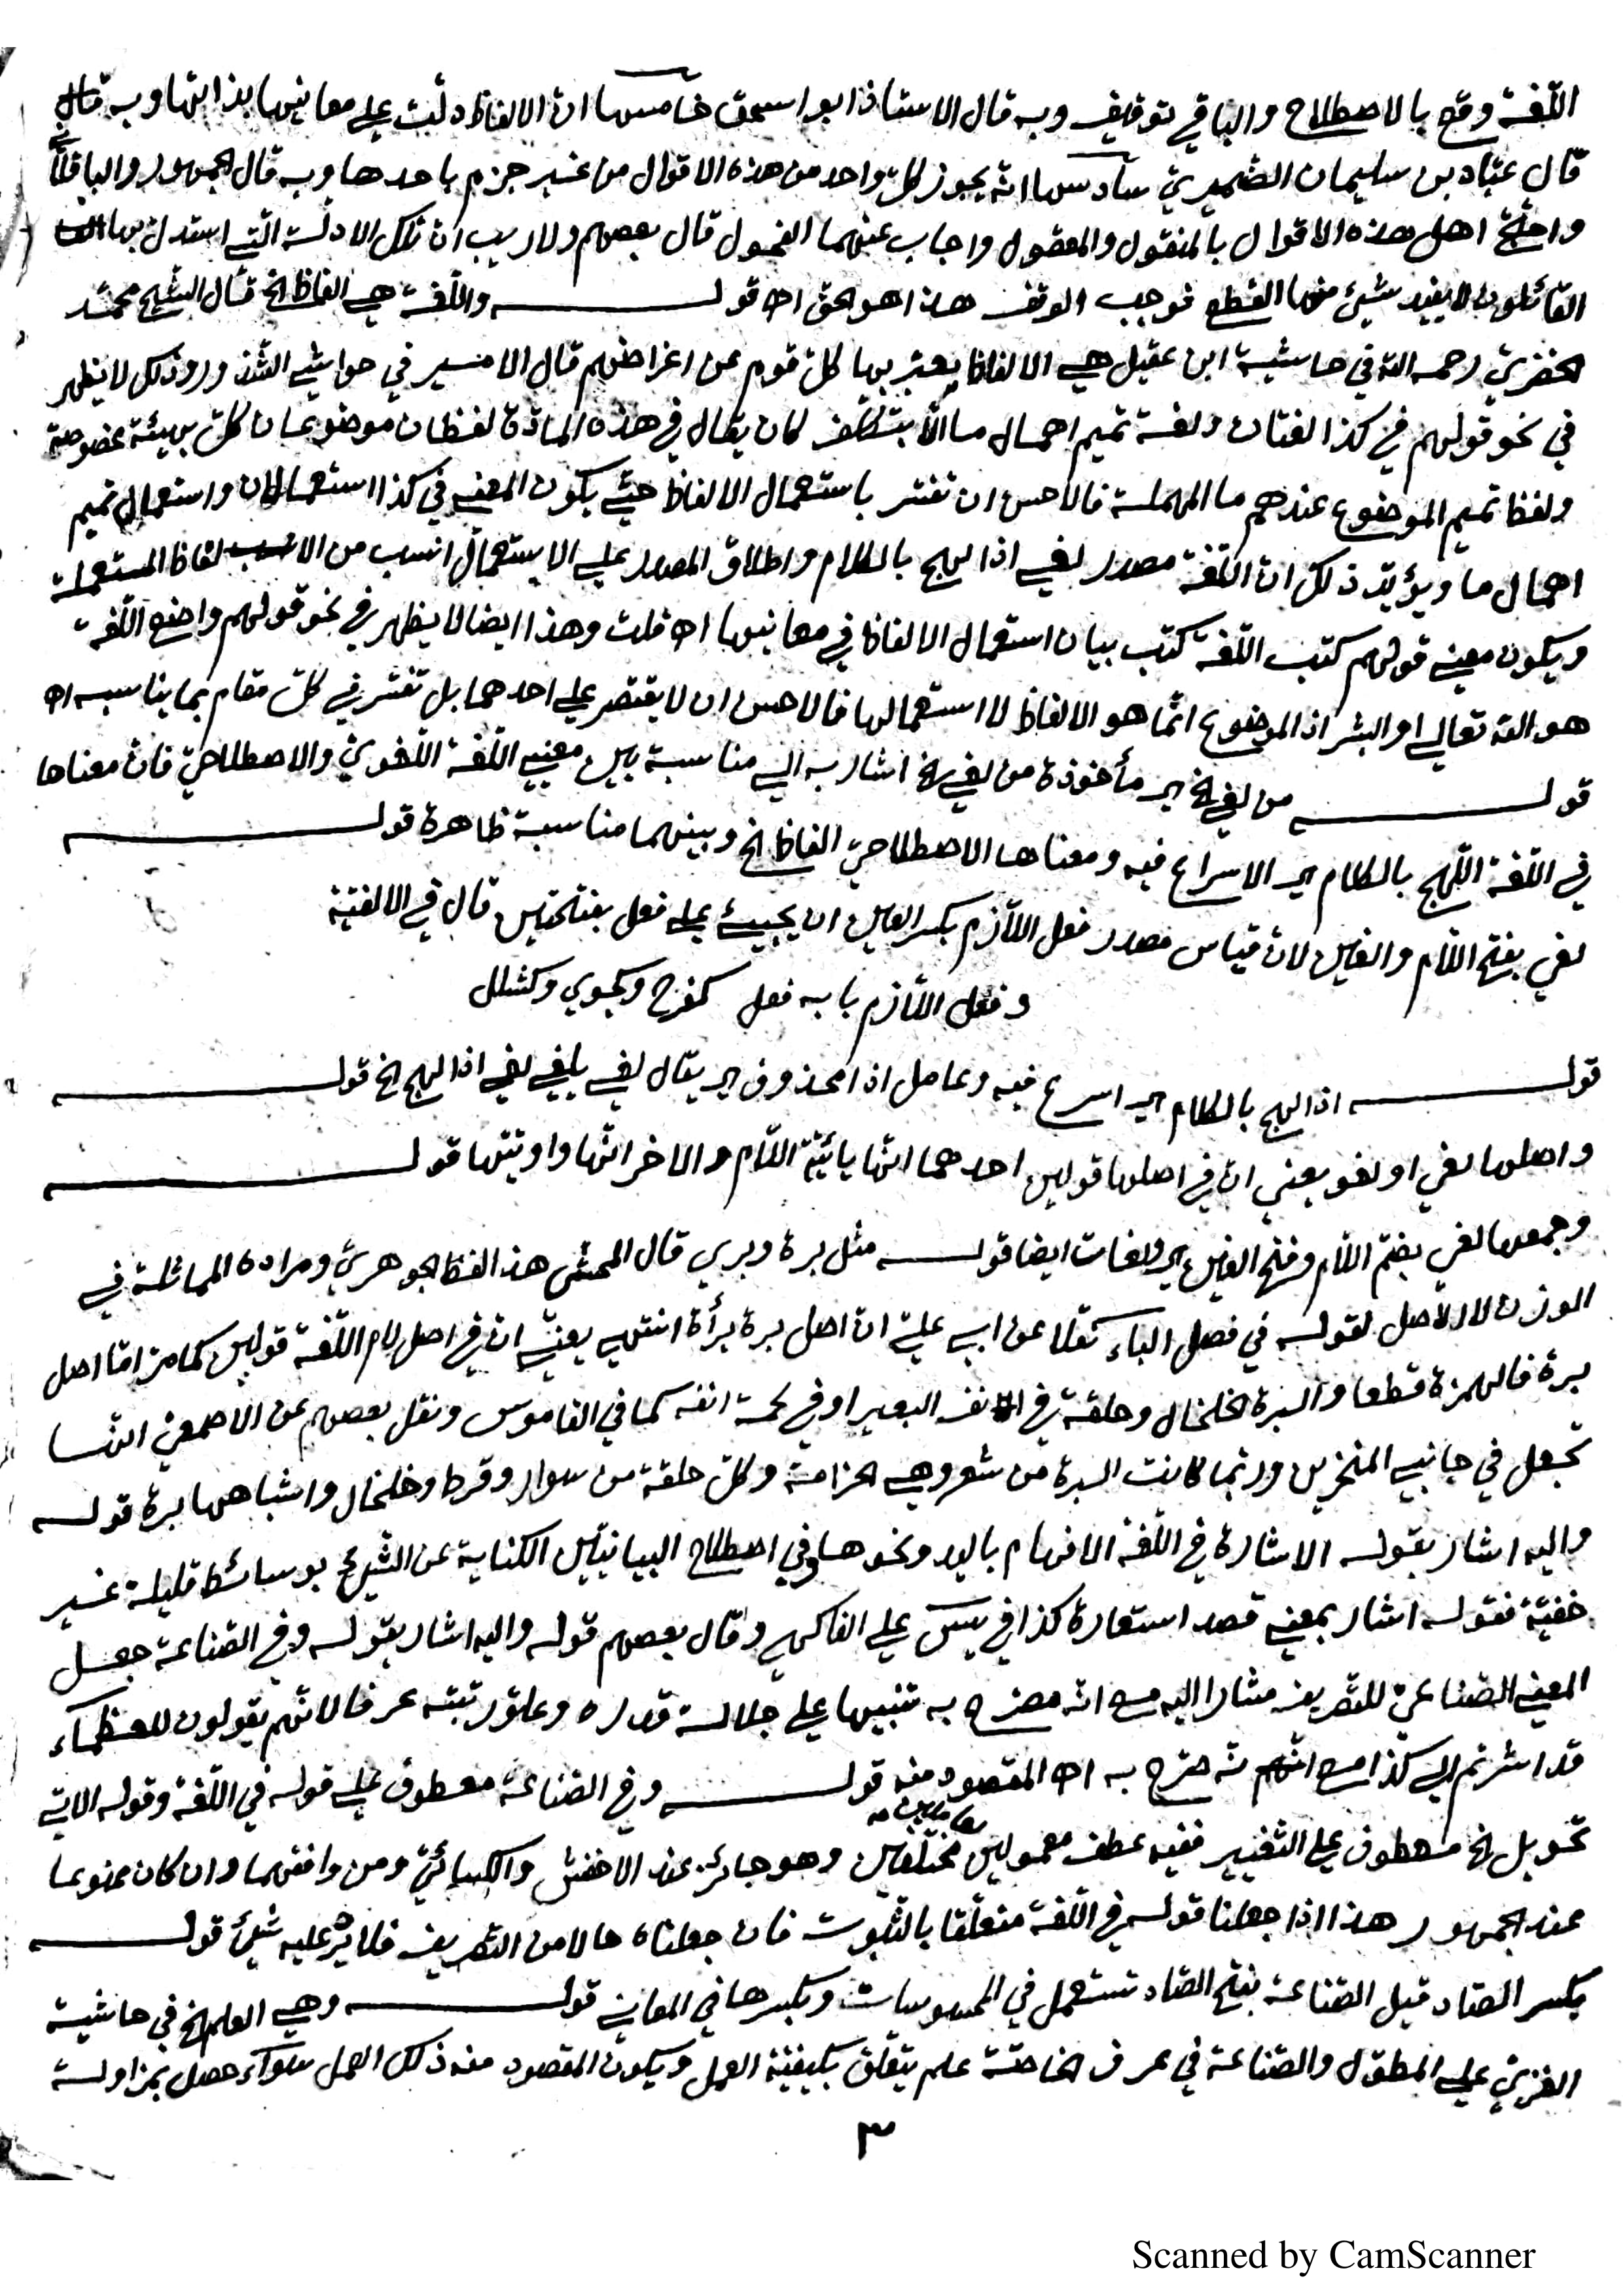 اللّغة وقع بالاصطلاح والباقي توقيف وبه قال الاستاذ ابو اسحق خامسها انّ الالفاظ دلّت على معانيها بذاتها وبه قال
قال عبّاد بن سليمان الضّميريّ سادسها انّه يجوز كلّ واحد من هذه الاقوال من غير جزم باحدها وبه قال الجمهور والباقلّاني
واحتجّ اهل هذه الاقوال بالمنقول والمعقول واجاب عنهما الفحول قال بعضهم ولا ريب انّ تلك الادلّة التي استدلّ بها
القائلون لا يفيد شيئ منها القطع فوجب الوقف هذا هو الحق اه قولـــه واللّغة هي الفاظ الخ قال الشّيخ محمّد
الخضريّ رحمه الله في حاشية ابن عقيل هي الالفاظ يعبّر بها كلّ قوم عن اغراضهم قال الامير في حواشي الشّذور وذلك لا يظهر
في نحو قولهم في كذا لغتان ولغة تميم اهمال ما الّا بتكلّف كان يقال في هذه المادّة لفظان موضوعان كلّ بهيئة مخصوصة
ولفظ تميم الموضوع عندهم ما المهملة فالاحسن ان تفسّر باستعمال الالفاظ حتّى يكون المعنى في كذا استعمالان واستعمال تميم
اهمال ما ويؤيّد ذلك انّ اللّغة مصدر لغي اذا لهج بالكلام واطلاق المصدر على الاستعمال انسب من الالفاظ المستعملة
ويكون معنى قولهم كتب اللّغة كتب بيان استعمال الالفاظ في معانيها اه قلت وهذا ايضا لا يظهر في نحو قولهم واضع اللّغة
هو الله تعالى او البشر اذ الموضوع انّما هو الالفاظ لا استعمالها فالاحسن ان لا يقتصر على احدهما بل تفسّر في كلّ مقام بما يناسبه اه
قولـــه من لغي الخ اي مأخوذة من لغي الخ اشار به الى مناسبة بين معنيي اللّغة اللّغويّ والاصطلاحيّ فانّ معناها
في اللّغة اللّهج بالكلام اي الاسراع فيه ومعناها الاصطلاحيّ الفاظ الخ وبينهما مناسبة ظاهرة قولـــه
لغي بفتح اللّام والغين لانّ قياس مصدر فعل اللّازم بكسر العين ان يجيئ على فعل بفتحتين قال في الالفيّة
وفعل اللّازم بابه فعل كفرح وكجوي وكشلل
قولـــه اذا لهج بالكلام اي اسرع فيه وعامل اذا محذوف اي يقال لغي يلغى لغي اذا لهج الخ قولـــه
واصلها لغي او لغو يعني انّ في اصلها قولين احدهما انّها يائيّة اللّام والاخر انّها واويّتها قولـــه
وجمعها لغي بضمّ اللّام وفتح الغين اي ولغات ايضا قولـــه مثل برة وبري قال المحشّى هذا لفظ الجوهريّ ومراده المماثلة في
الوزن لا الاصل لقوله في فصل الباء نقلا عن ابي عليّ انّ اصل برة برأة انتهى يعنى انّ في اصل لام اللّغة قولين كما مرّ امّا اصل
برة فالهمزة قطعا والبرة الخلخال وحلقة في انف البعير او في لحمة انفه كما في القاموس ونقل بعضهم عن الاصمعيّ انّها
تجعل في جانبي المنخرين وربّما كانت البرة من شعر وهي الخزامة وكلّ حلقة من سوار وقرط وخلخال واشباهها برة قولـــه
واليه اشار بقوله الاشارة في اللّغة الافهام باليد ونحوها وفي اصطلاح البيانيّين الكناية عن الشّيئ بوسائط قليلة غير
خفيّة فقوله اشار بمعنى قصد استعارة كذا في يسٓ على الفاكهي وقال بعضهم قوله واليه اشار بقوله وفي الصّناعة جعل
المعنى الصّناعيّ للتّصريف مشارا اليه مع انّه مصرّح به تنبيها على جلالة قدره وعلوّ رتبته عرفا لانّهم يقولون للعظماء
قد اشرتم الى كذا مع انّهم صرّح به اه المقصود منه قولـــه وفي الصّناعة معطوف على قوله في اللّغة وقوله الاتي
تحويل الخ معطوف على التّغيير ففيه عطف معمولين مختلفين وهو جائز عند الاخفش والكسائيّ ومن وافقهما وان كان ممنوعا
عند الجمهور هذا اذا جعلنا قوله في اللّغة متعلّقا بالثّبوت فان جعلناه حالا من التّصريف فلا يرد عليه شيئ قولـــه
بكسر الصّاد قيل الصّناعة بفتح الصّاد تستعمل في المحسوسات وبكسرها في المعاني قولـــه وهي العلم الخ في حاشية
الفنريّ على المطوّل والصّناعة في عرف الخاصّة علم يتعلّق بكيفيّة العمل ويكون المقصود منه ذلك العمل سواء حصل بمزاولة
٣
Scanned by CamScanner